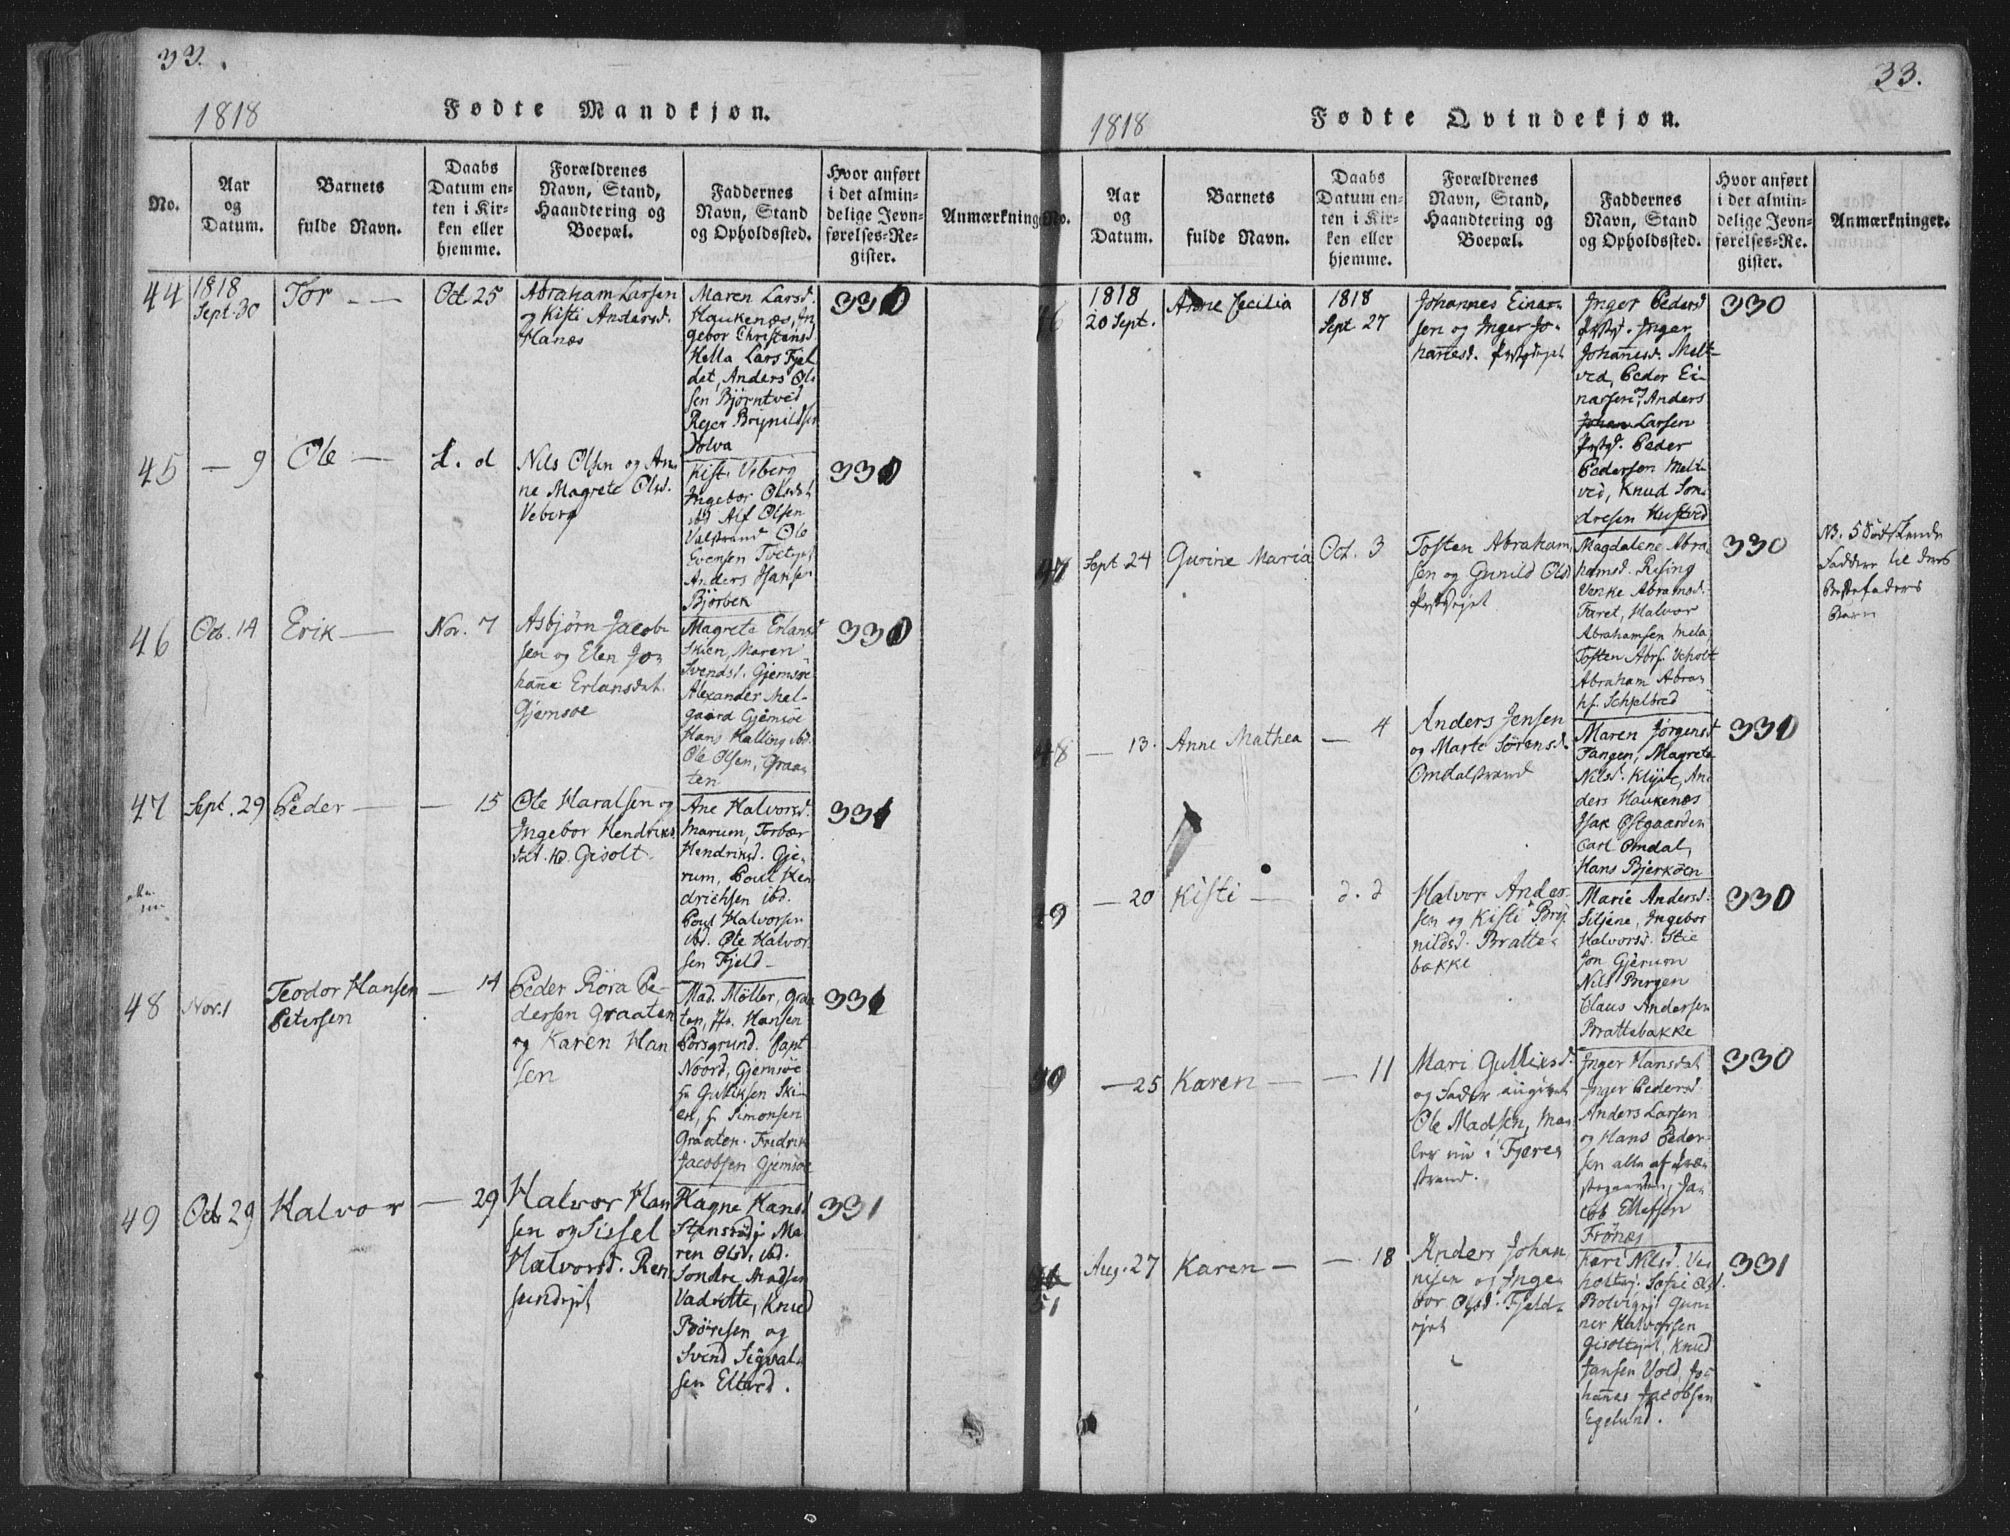 33.
1818
Fødte Mandkjøn.
No.
Aar
og
Datum.
Barnets
fulde Navn.
Daabs
Datum en-
ten i Kir-
ken eller
hjemme.
Forældrenes
Navn, Stand,
Haandtering og
Boepæl.
Faddernes
Navn, Stand
og Opholdssted.
Hvor anført
i det almin-
delige Jevn-
førelses-Re-
gister.
Anmærkninger
44
1818
Sept. 30
Tor
Oct 25
Abraham Larsen
og Kisti Andersd.
Hanæs
Maren Larsd.
Haukenæs, In
gebor Christensd
Hella Lars Fjel
det, Anders Ol
sen Bjørntved
Rejer Brynildsen
Dolva
330
45
9
Ole
d. d
Nils Olsen og An
ne Magrete Olsd.
Veberg
Kisti Veberg
Ingebor Olsdat
ibd Alf Olsen
Valstrand Ole
Evensen Tvetejet
Anders Hansen
Björbek
330
46
Oct. 14
Erik
Nov. 7
Asbjørn Jacob
sen og Elen Jo
hanne Erlansdat.
Gjemsøe
Magrete Erlansd
Skien, Maren
Svendsd. Gjemsøe
Alexander Mel
gaard Gjemsøe
Hans Halling ibd.
Ole Olsen, Graa
ten
330
47
Sept. 29
Peder
15
Ole Haralsen og
Ingebor Hendriks
dat. Gisolt.
Ane Halvorsd.
Marum, Torbær
Hendriksd. Gje
rum, Poul Hen
drichsen ibd.
Poul Halvorsen
ibd. Ole Halvor
sen Fjeld
331
48
Nov. 1
Teodor Hansen
Petersen
14
Peder Röra Pe-
dersen Graaten
og Karen Han
sen
Mad. Möller, Graa
ten, Hansen
Porsgrund. Capt
Noord, Gjemsøe
Gulliksen Ski-
en, Simonsen
Graaten. Fredrik
Jacobsen Gjemsøe
331
49
Oct 29
Halvor
29
Halvor Han
sen og Sissel
Halvorsd. Ren
sundejet
Hagne Hansd
Stensrödej Ma
ren Olsd. ibd.
Sondre Madsen
Vadrette, Knud
Böresen og
Svend Sigvald
sen Eltved.
331
33.
1818
Fødte Qvindekjøn.
No.
Aar
og
Datum.
Barnets
fulde Navn.
Daabs
Datum en-
ten i Kir-
ken eller
hjemme.
Forældrenes
Navn, Stand,
Haandtering og
Boepæl.
Faddernes
Navn, Stand
og Opholdssted.
Hvor anført
i det almin-
delige Jevn-
førelses-Re-
gister.
Anmærkninger.
46
1818
20 Sept.
Anne Cecilia
1818
Sept 27
Johannes Einar
sen og Inger Jo-
hannesd.
Inger Pedersd
Inger
Johannesd. Melt
ved, Peder Ei-
narsen, Anders
Larsen
Peder
Pedersen Melt
ved, Knud Son
dresen Hustved
330
47
Sept 24
Gurine Maria
Oct. 3
Tosten Abraham
sen og Gunild Olsd
Magdalene Abra
hamsd. Rising
Venke Abramsd.
Faret, Halvor
Abrahamsen Mela
Tosten Abrs. Veholt
Abraham Abra
hs. Schjelbred
330
NB. 5
Faddere til deres
Bestefaders
Barn
48
13.
Anne Mathea
4
Anders Jensen
og Marte Sørensd.
Omdalstrand
Maren Jørgensd
Tangen, Magrete
Nilsd. Klyve, An
ders Haukenæs
Isak Østgaarden
Carl Omdal,
Hans Bjerköen
330
49
20
Kisti
d. d
Halvor Ander
sen og Kisti Bry
nildsd. Bratte-
bakke
Marie Andersd.
Siljene, Ingebor
Halvorsd. Stie
Jon Gjerum
Nils Bergen
Claus Andersen
Brattebakke
330
50
25
Karen
11
Mari Gulliksd.
og Fader angivet
Ole Madsen, Ma-
ler nu i Fjere
strand.
Inger Hansdat
Inger Pedersd
Anders Larsen
og Hans Peder-
sen alle af Præ-
stegaarden, Ja-
cob Ellefsen
Frönæs
330
51
Aug. 27
Karen
18
Anders Johan
nesen og Inge
bor Olsd. Fjeld-
ejet
Kari Nilsd. Ve
holtej. Sofie Olsd.
Bolvigej Gun
ner Halvorsen
Gisoltejet, Knud
Jansen Vold, Jo-
hannes Jacobsen
Egelund.
331